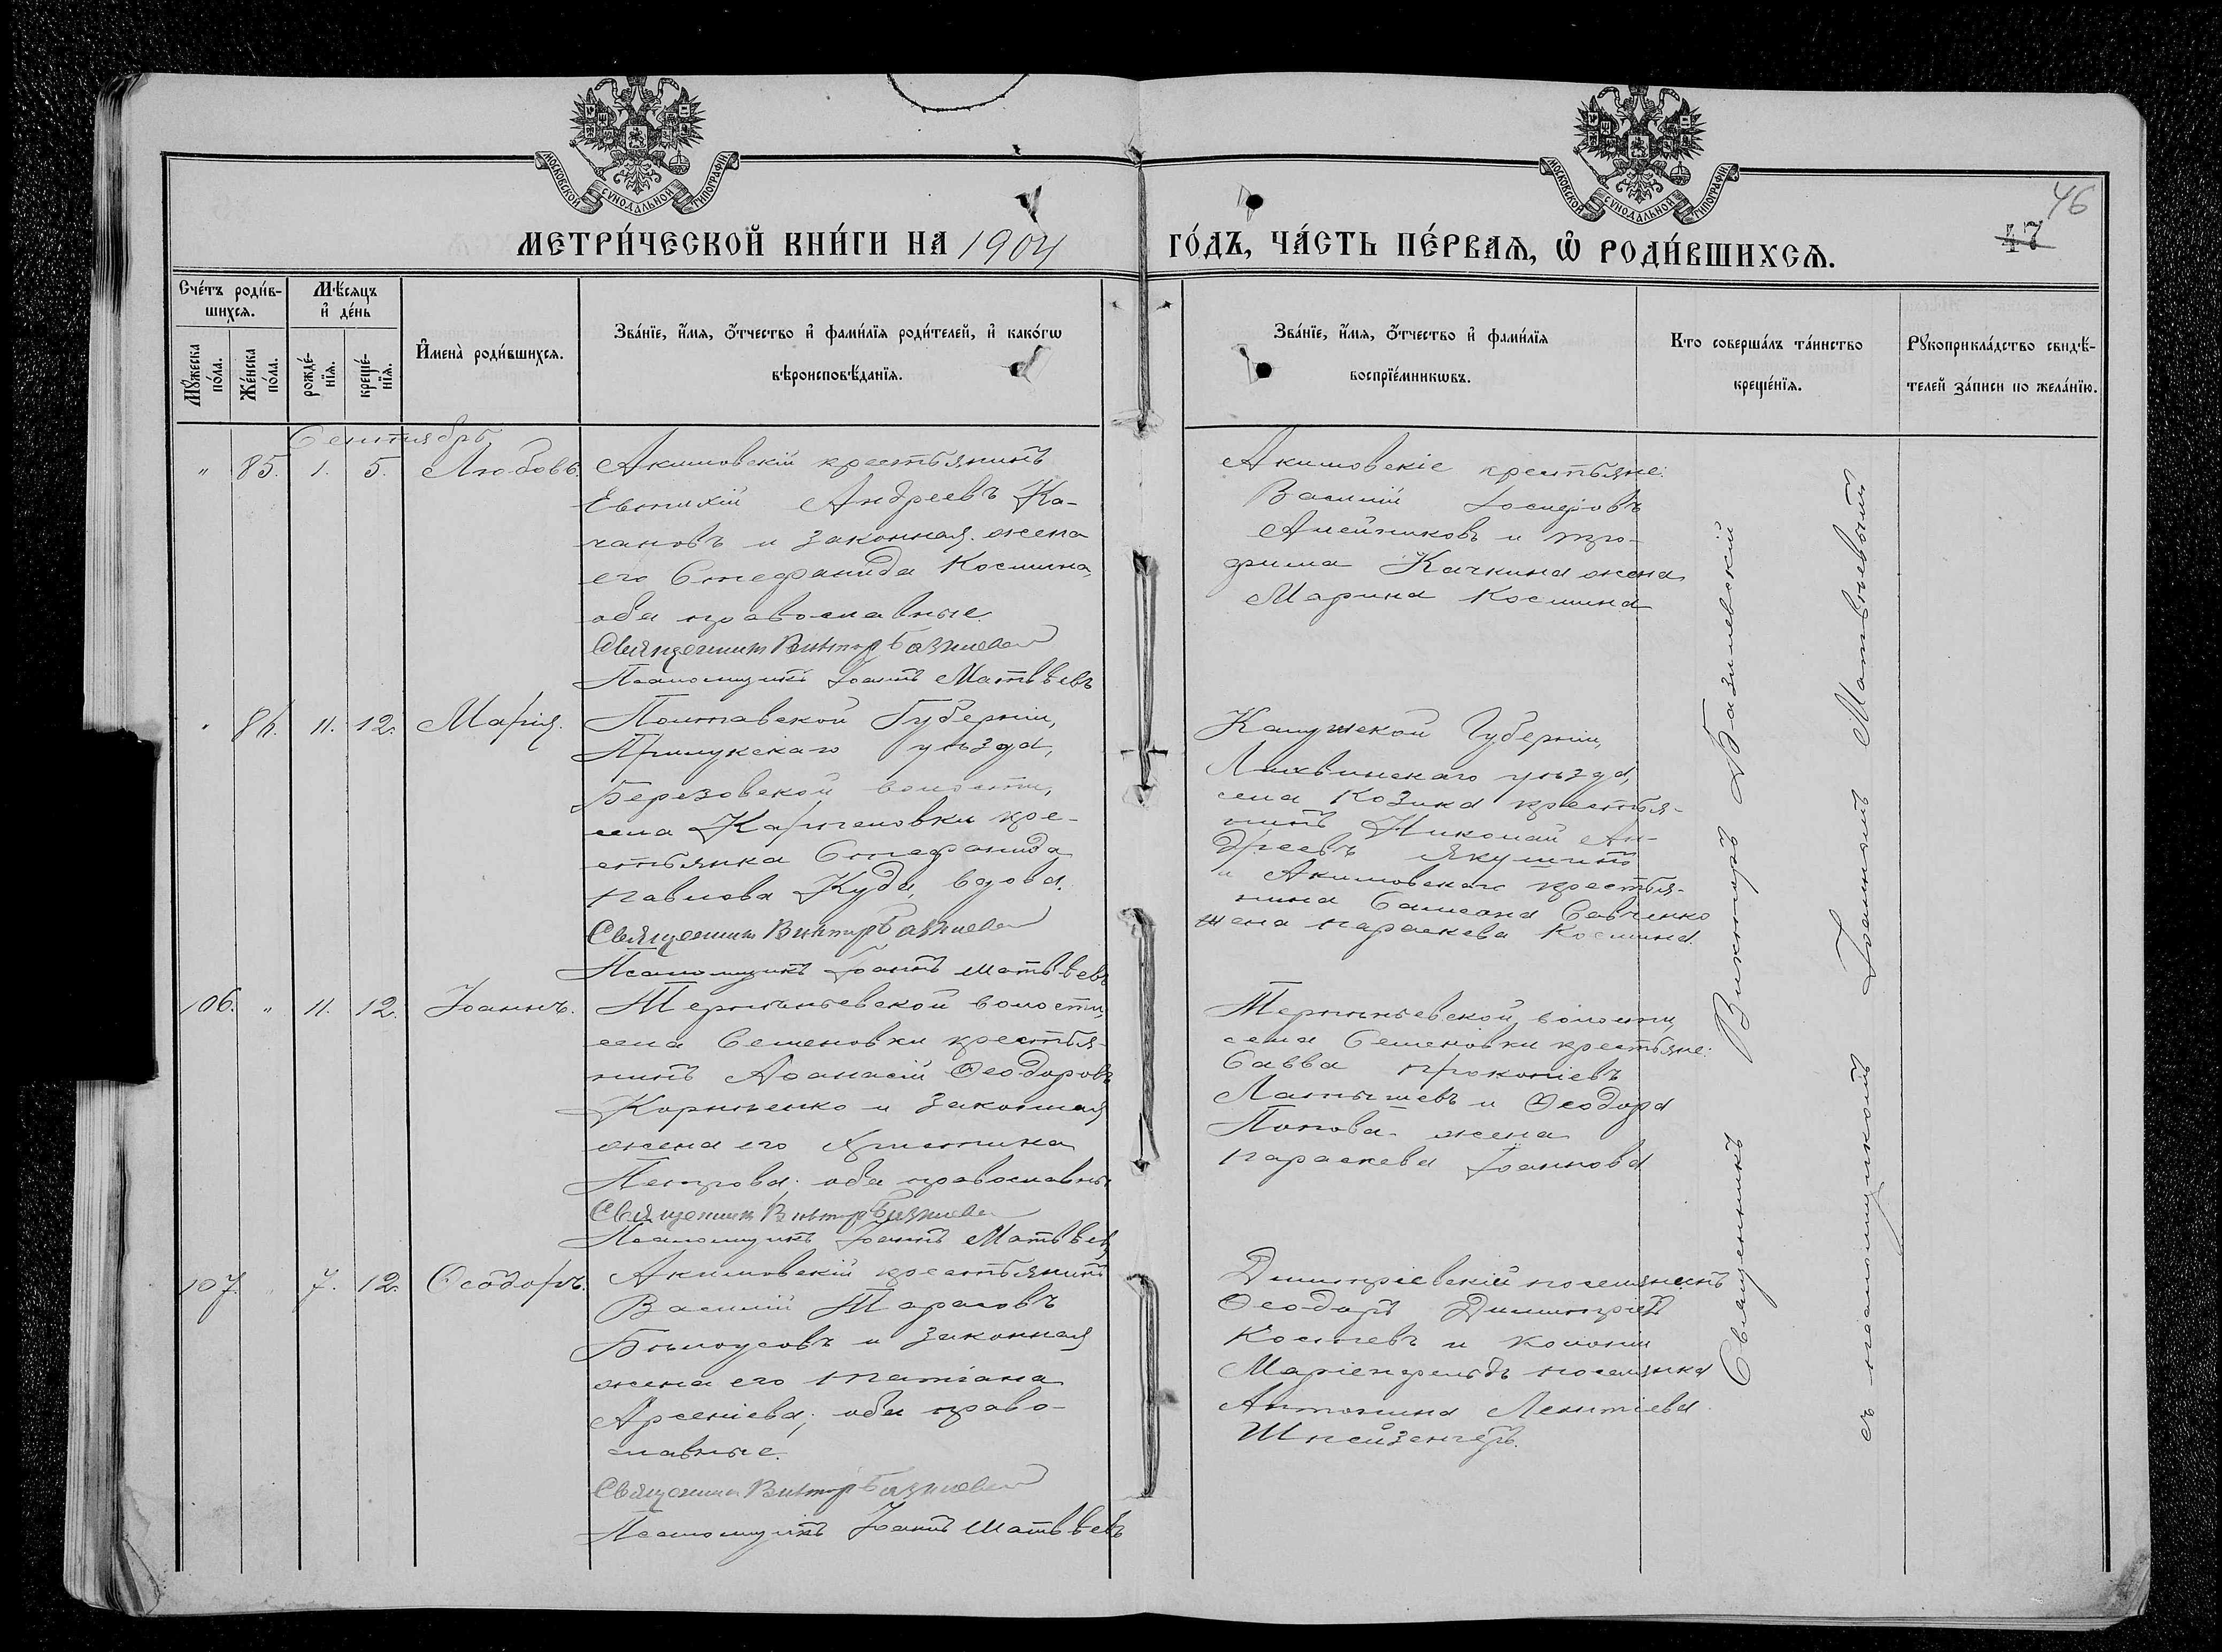 МОСКОВСКОЙ СѴНОДАЛЬНОЙ ТИПОГРАФІИ
МОСКОВСКОЙ СѴНОДАЛЬНОЙ ТИПОГРАФІИ
46
47
МЕТРИ́ЧЕСКОЙ КНИ́ГИ НА 1904 ГО́ДЪ, ЧА́СТЬ ПЕ́РВАѦ, Ѡ РОДИ́ВШИХСѦ.
Сче́тъ роди́в-
шихсѧ.
Мѣ́сѧцъ
и҆ де́нь
Мꙋ́жеска по́ла.
Же́нска по́ла.
рожде́-
нїѧ.
креще́-
нїѧ.
И҆мена̀ роди́вшихсѧ.
Зва́нїе, и҆́мѧ, ѻ҆́тчество и҆ фами́лїѧ роди́телей, и҆ како́гѡ
вѣроисповѣ́данїѧ.
Зва́нїе, и҆́мѧ, ѻ҆́тчество и҆ фами́лїѧ
воспрїе́мникѡвъ.
Кто соверша́лъ та́инство
креще́нїѧ.
Рꙋкоприкла́дство свидѣ́-
телей за́писи по жела́нїю.
Сентябрь
" 85. 1. 5. Любовь.
Акимовскій крестьянинъ
Евтихій Андреевъ Ка-
чановъ и законная жена
его Стефанида Космина,
оба православные.
Священникъ Викторъ Базилевскій
Псаломщикъ Іоаннъ Матвѣевъ
Акимовскіе крестьяне:
Василій Іосифовъ
Алейниковъ и Тро-
фима Качкина жена
Марина Космина
" 86. 11. 12. Марія.
Полтавской Губерніи,
Прилукскаго уѣзда,
Березовской волости,
села Карпиловки кре-
стьянка Стефанида
Павлова Куда, вдова.
Священникъ Викторъ Базилевскій
Псаломщикъ Іоаннъ Матвѣевъ
Калужской Губерніи,
Лихвинскаго уѣзда,
села Козина крестья-
нинъ Николай Ан-
дреевъ Якушинъ
и Акимовскаго крестья-
нина Самсона Савченко
жена Параскева Космина.
106. " 11. 12. Іоаннъ.
Терпѣньевской волости,
села Семеновки крестья-
нинъ Аѳанасій Ѳеодоровъ
Корниенко и законная
жена его Христина
Петрова; оба православны
Священникъ Викторъ Базилевскій
Псаломщикъ Іоаннъ Матвѣевъ
Терпѣньевской волости,
села Семеновки крестьяне:
Савва Прокопіевъ
Латышевъ и Ѳеодора
Попова жена
Параскева Іоаннова
107. " 7. 12. Ѳеодоръ.
Акимовскій крестьянинъ
Василій Тарасовъ
Бѣлоусовъ и законная
жена его Татіана
Арсеніева; оба право-
славные.
Священникъ Викторъ Базилевскій
Псаломщикъ Іоаннъ Матвѣевъ
Димитріевскій поселянинъ
Ѳеодоръ Димитріевъ
Костевъ и колоніи
Маріенфельдъ поселянка
Антонина Леонтіева
Шнейзенгеръ.
Священникъ Викторъ Базилевскій
съ псаломщикомъ Іоанномъ Матвѣевымъ